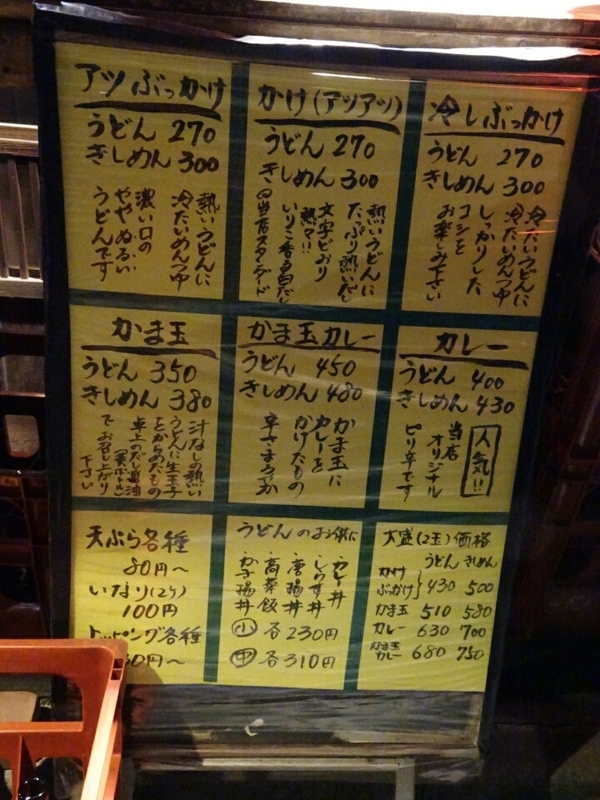 アツぶっかけ
うどん 270
きしめん 300
熱いうどんに
冷たいめんつゆ
濃い口の
ややぬるい
うどんです
かけ(アツアツ)
うどん 270
きしめん 300
熱いうどんに
たっぷり熱いだし
文字どおり
熱々!!
いりこ香る白だし
@当店スタンダード
冷しぶっかけ
うどん 270
きしめん 300
冷たいうどんに
冷たいめんつゆ
しっかりした
コシを
お楽しみ下さい
かま玉
うどん 350
きしめん 380
汁なしの熱い
うどんに生玉子
をからめたもの
卓上のだし醤油
でお召し上がり
下さい
かま玉カレー
うどん 450
きしめん 480
かま玉に
カレーを
かけたもの
辛さまろやか
カレー
うどん 400
きしめん 430
人気!!
当店
オリジナル
ピリ辛です
天ぷら各種
80円〜
いなり(2ケ)
100円
トッピング各種
30円〜
うどんのお供に
カレー丼
しらす丼
唐揚丼
高菜飯
玉子丼
小 各230円
中 各310円
大盛(2玉)価格
うどん きしめん
かけ
ぶっかけ } 430 500
かま玉 510 580
カレー 630 700
かま玉
カレー 680 750